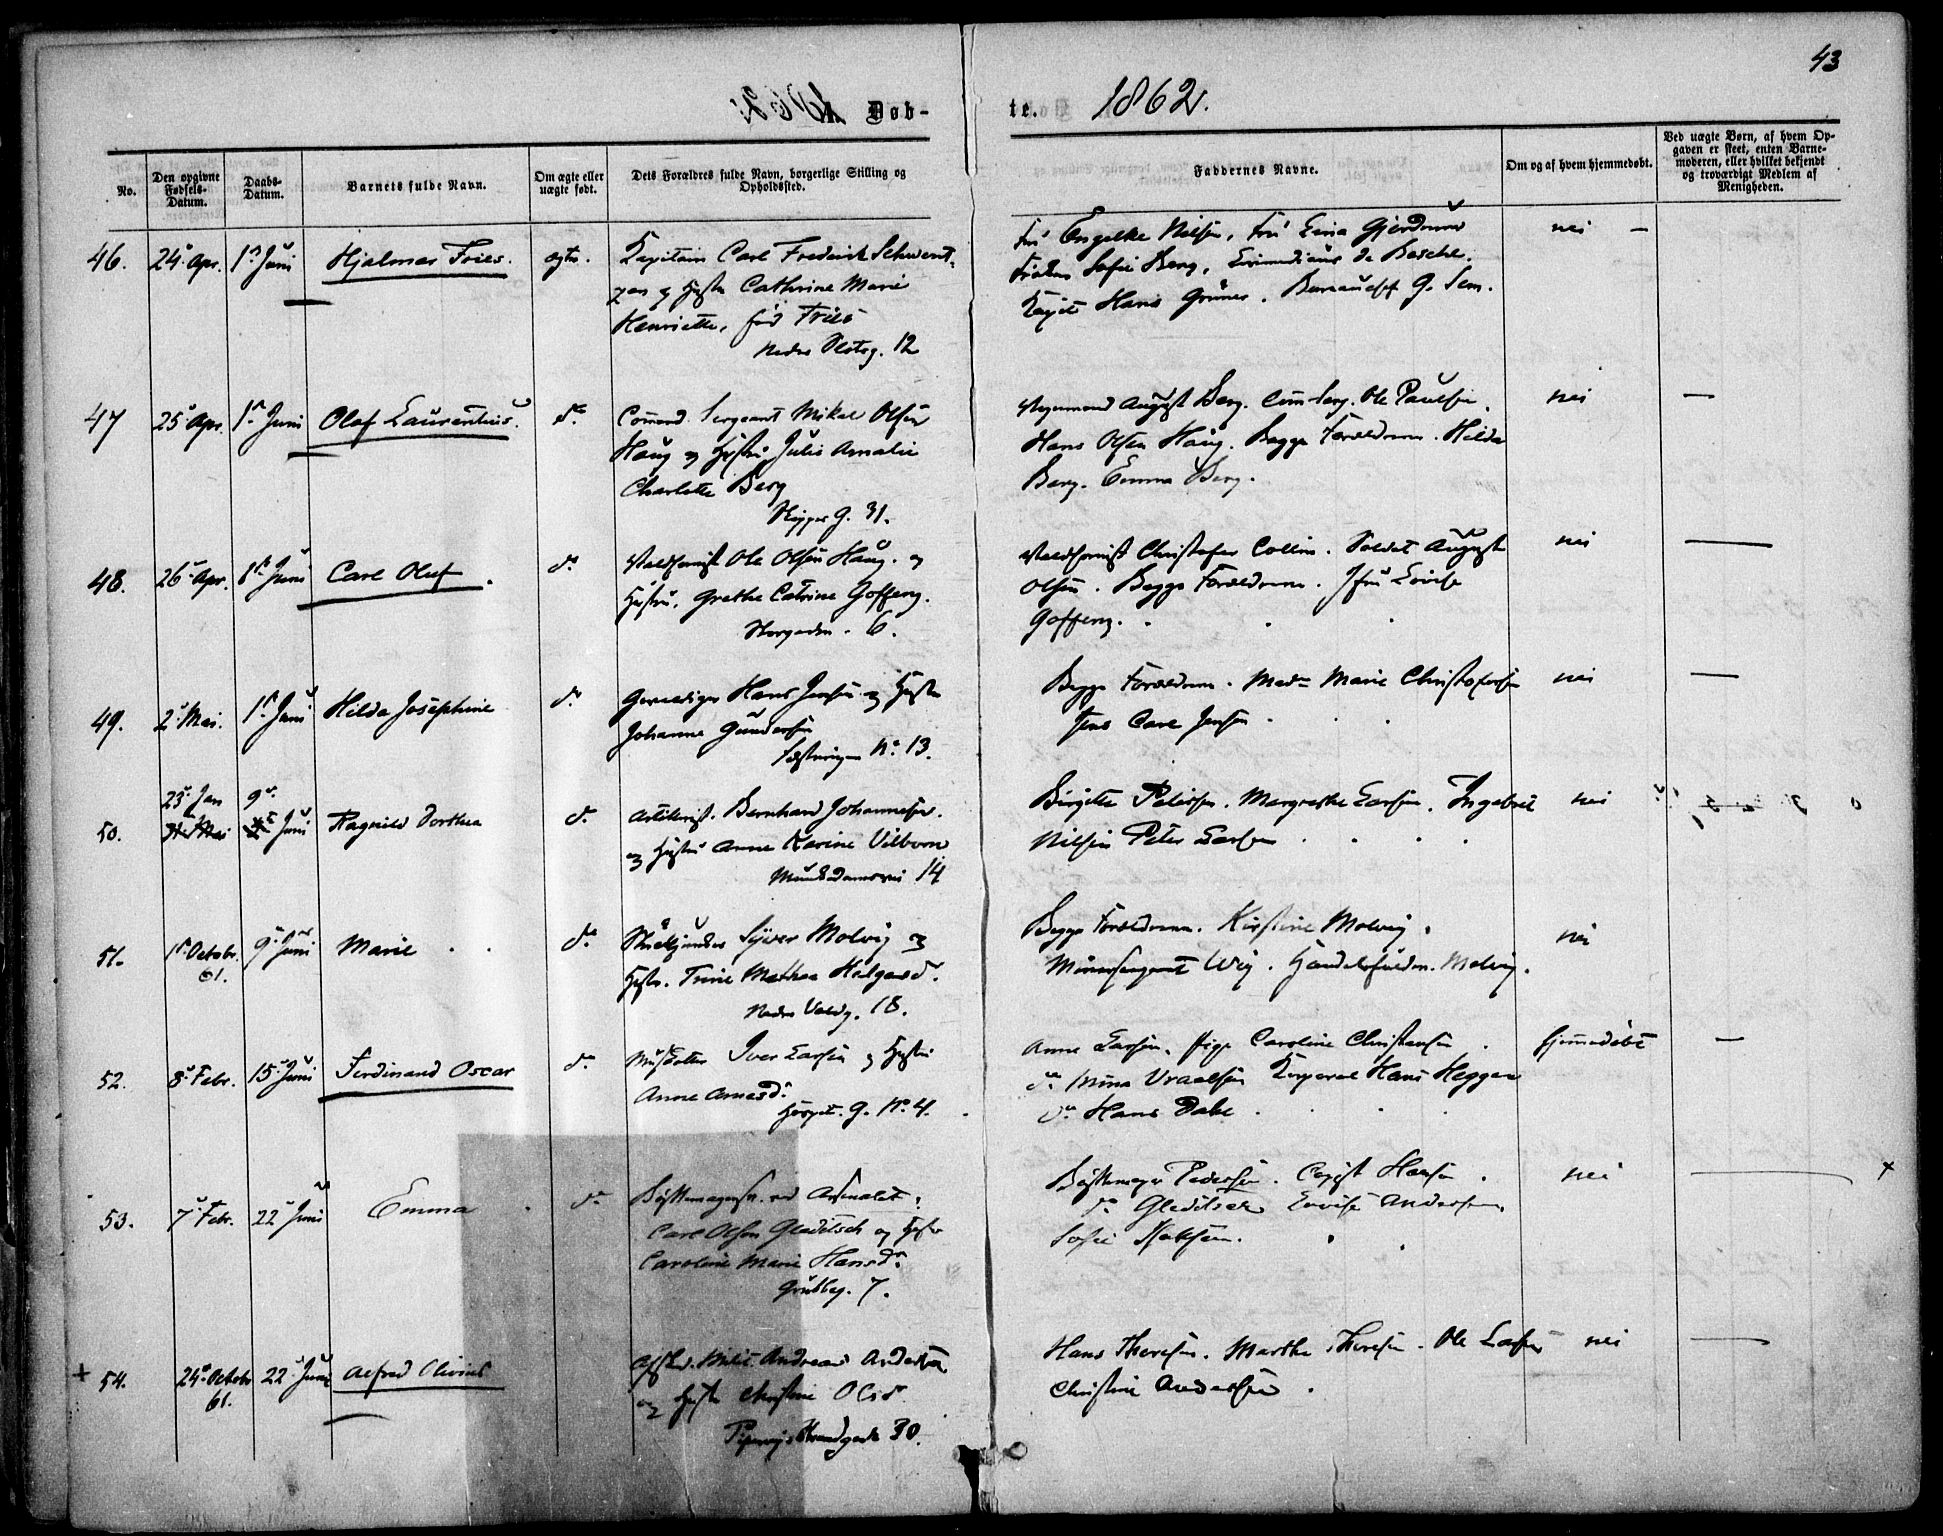 43
Døb- te. 1862.
No.
Den opgivne Fødsels-Datum.
Daabs-Datum.
Barnets fulde Navn.
Om ægte eller uægte født.
Dets Forældres fulde Navn, borgerlige Stilling og Opholdssted.
Faddernes Navne.
Om og af hvem hjemmedøbt.
Ved uægte Børn, af hvem Opgaven er skeet, enten Barnemoderen, eller hvilket bekjendt og troværdigt Medlem af Menigheden.
46. 24 Apr. 1 Juni Hjalmar Fries. ægte. Kapitain Carl Frederik Schwent-
zen og Hustr Cathrine Marie
Henriette, fød Fries
Nedre Slotsg. 12
Fru Engelke Nilsen, Fru Lina Gjerdrum nei —
Frøken Sofie Berg,
Kapit Hans Grüner. G. Sem.
47 25 Apr. 1 Juni Olaf Laurentius. do Command Sergeant Mikal Olsen
Haug og Hustru Julie Amalie
Charlotte Berg
Skipper G. 31.
August Berg. Com Serg. Ole Paulsen. nei —
Hans Olsen Haug. Begge Forældrene. Hilda
Berg. Emma Berg.
48. 26 Apr. 8 Juni Carl Oluf. do Ole Olsen Haug. og
Hustru. Grethe Catrine Goffeng.
Storgaden. 6.
Christofer Collin. Soldat August nei —
Olsen. Begge Forældrene. Jfru Lovise
Goffeng.
49. 2 Mai. 1 Juni Hilda Josephine do Hans Jensen og Hustr
Johanne Gundersen
Fæstningen No. 13.
Begge Forældrene. Madm Marie Christofersen nei —
Jens Carl Jensen.
50. 23 Jan 9 Juni Ragnild Dorthea do Artilerist. Bernhard Johannesen.
og Hustru Anne Karine Vilborn
Munkedamsvei 14
Birgitte Petersen. Margrethe Larsen. Ingebret nei
Nilsen Peter Larsen
51. 1 Octobr. 61. 9 Juni Marie do Syver Molvig og
Hustr. Trine Mathea Hedgaard.
Nedre Voldg. 18.
Begge Forældrene. Kirstine Molvig. nei
Wig. Molvig.
52. 8 Febr. 15 Juni Ferdinand Oscar do Iver Larsen og Hustru
Anne Arnesd.
Hospit. G. No. 4.
Anne Larsen. Pige Caroline Christensen. hjemmedøbt —
do Mina Vraalsen Korporal Hans Heggen
do Hans Dahl
53. 7 Febr. 22 Juni Emma do Bøssemagersv. ved Arsenalet.
Carl Olsen Gleditsch og Hustr
Caroline Marie Hansd.
Grubbeg. 7.
Bøssemager Pedersen. Copist Hansen. nei — +
do Gleditsch Lovise Andersen
Sofie
+ 54. 24 Octobr 61. 22 Juni Alfred Olivius Andreas Andersen
og Hustr Christine Olsd.
Pipervig Strandgade 30.
Hans Thoresen. Marthe Thoresen. Ole Larsen nei —
Christine Andersen.